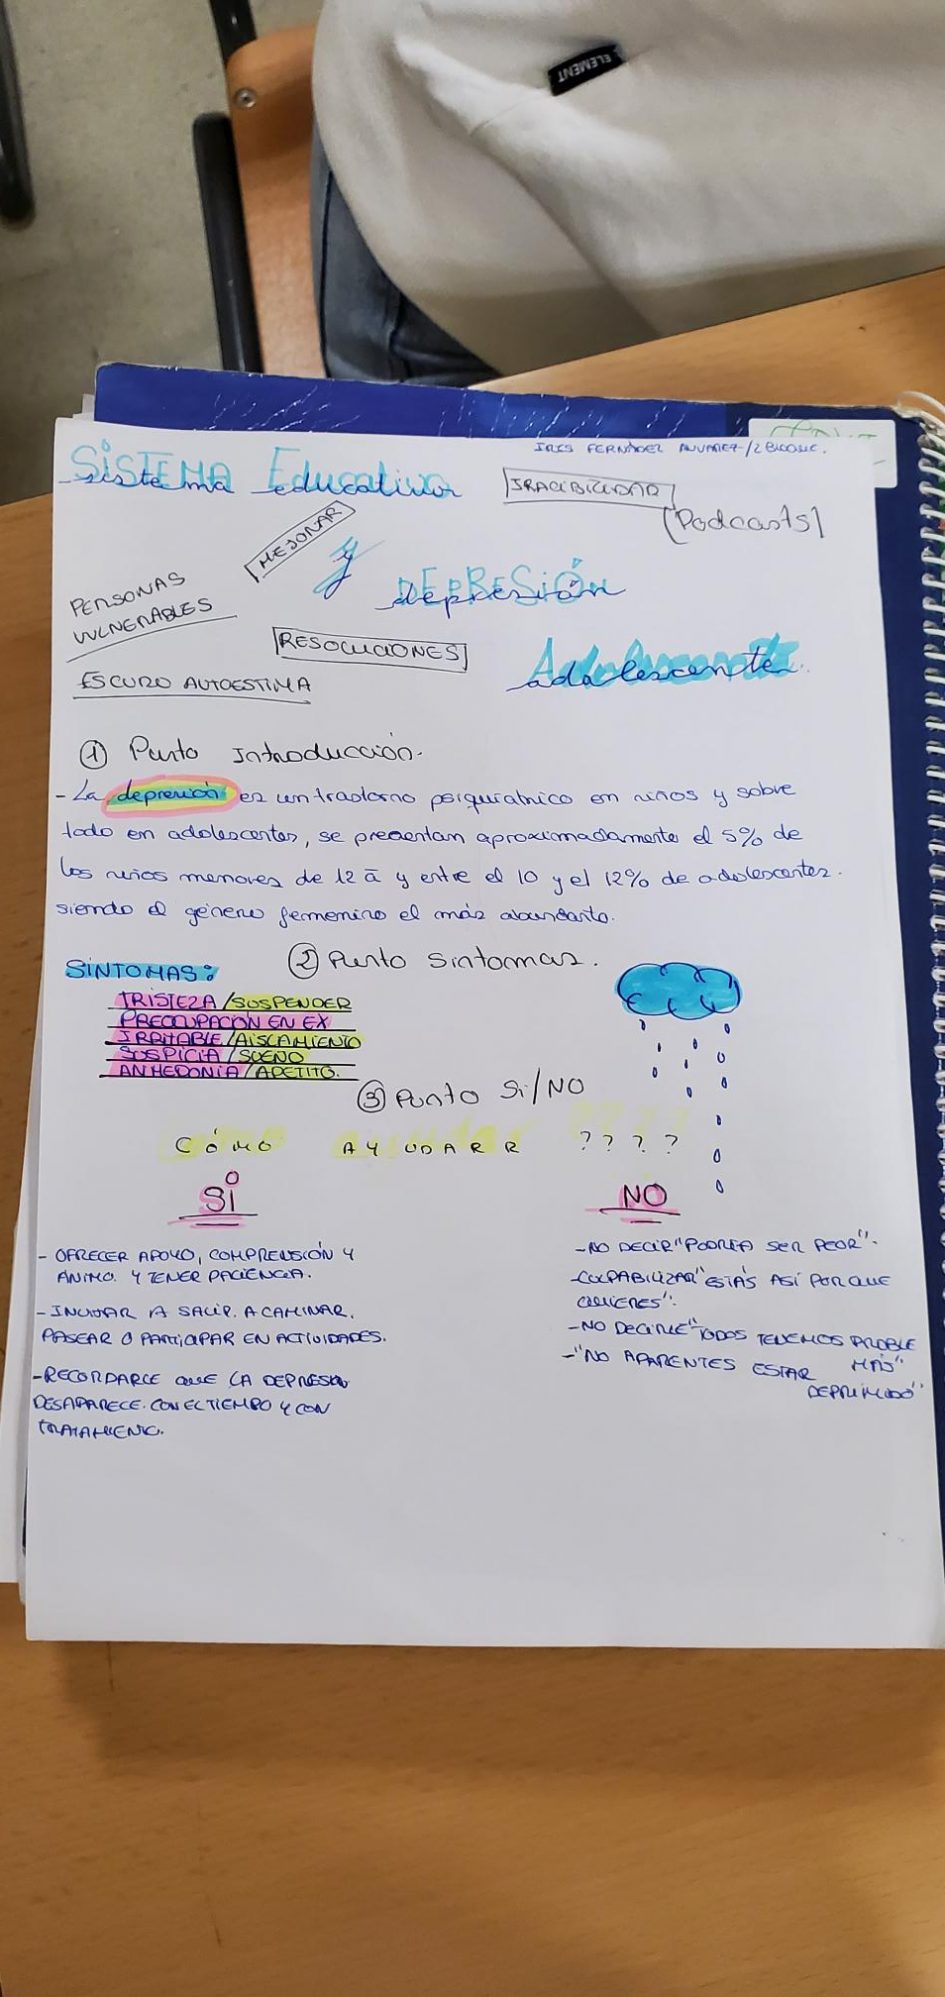 ELEMENT
IRIS FERNÁNDEZ ALVAREZ-/2 BLOQUE.
SISTEMA Educativo
sistema educativo
IRACIBILIDAD
[Podcasts]
MEJORAR
y
DEPRESIÓN
depresión
PERSONAS
VULNERABLES
RESOLUCIONES
Adolescente
adolescente.
ESCURO AUTOESTIMA
① Punto Introducción.
- La depresión es un trastorno psiquiatrico en niños y sobre
todo en adolescentes, se presentan aproximadamente el 5% de
los niños menores de 12 ā y entre el 10 y el 12% de adolescentes.
siendo el género femenino el más abundante.
② Punto Sintomas.
SÍNTOMAS:
TRISTEZA/SUSPENDER
PREOCUPACIÓN EN EX
IRRITABLE/AISLAMIENTO
SUSPICIA/SUEÑO
ANHEDONIA/APETITO.
③ Punto Si/NO
CÓMO AYUDARR ????
SÍ
- OFRECER APOYO, COMPRENSIÓN Y
ÁNIMO. Y TENER PACIENCIA.
- INVITAR A SALIR. A CAMINAR.
PASEAR O PARTICIPAR EN ACTIVIDADES.
- RECORDARLE QUE LA DEPRESIÓN
DESAPARECE. CON EL TIEMPO Y CON
TRATAMIENTO.
NO
- NO DECIR "PODRÍA SER PEOR".
- CULPABILIZAR "ESTÁS ASÍ PORQUE
QUIERES".
- NO DECIRLE "TODOS TENEMOS PROBLE
MAS"
- "NO APARENTES ESTAR
DEPRIMIDO"